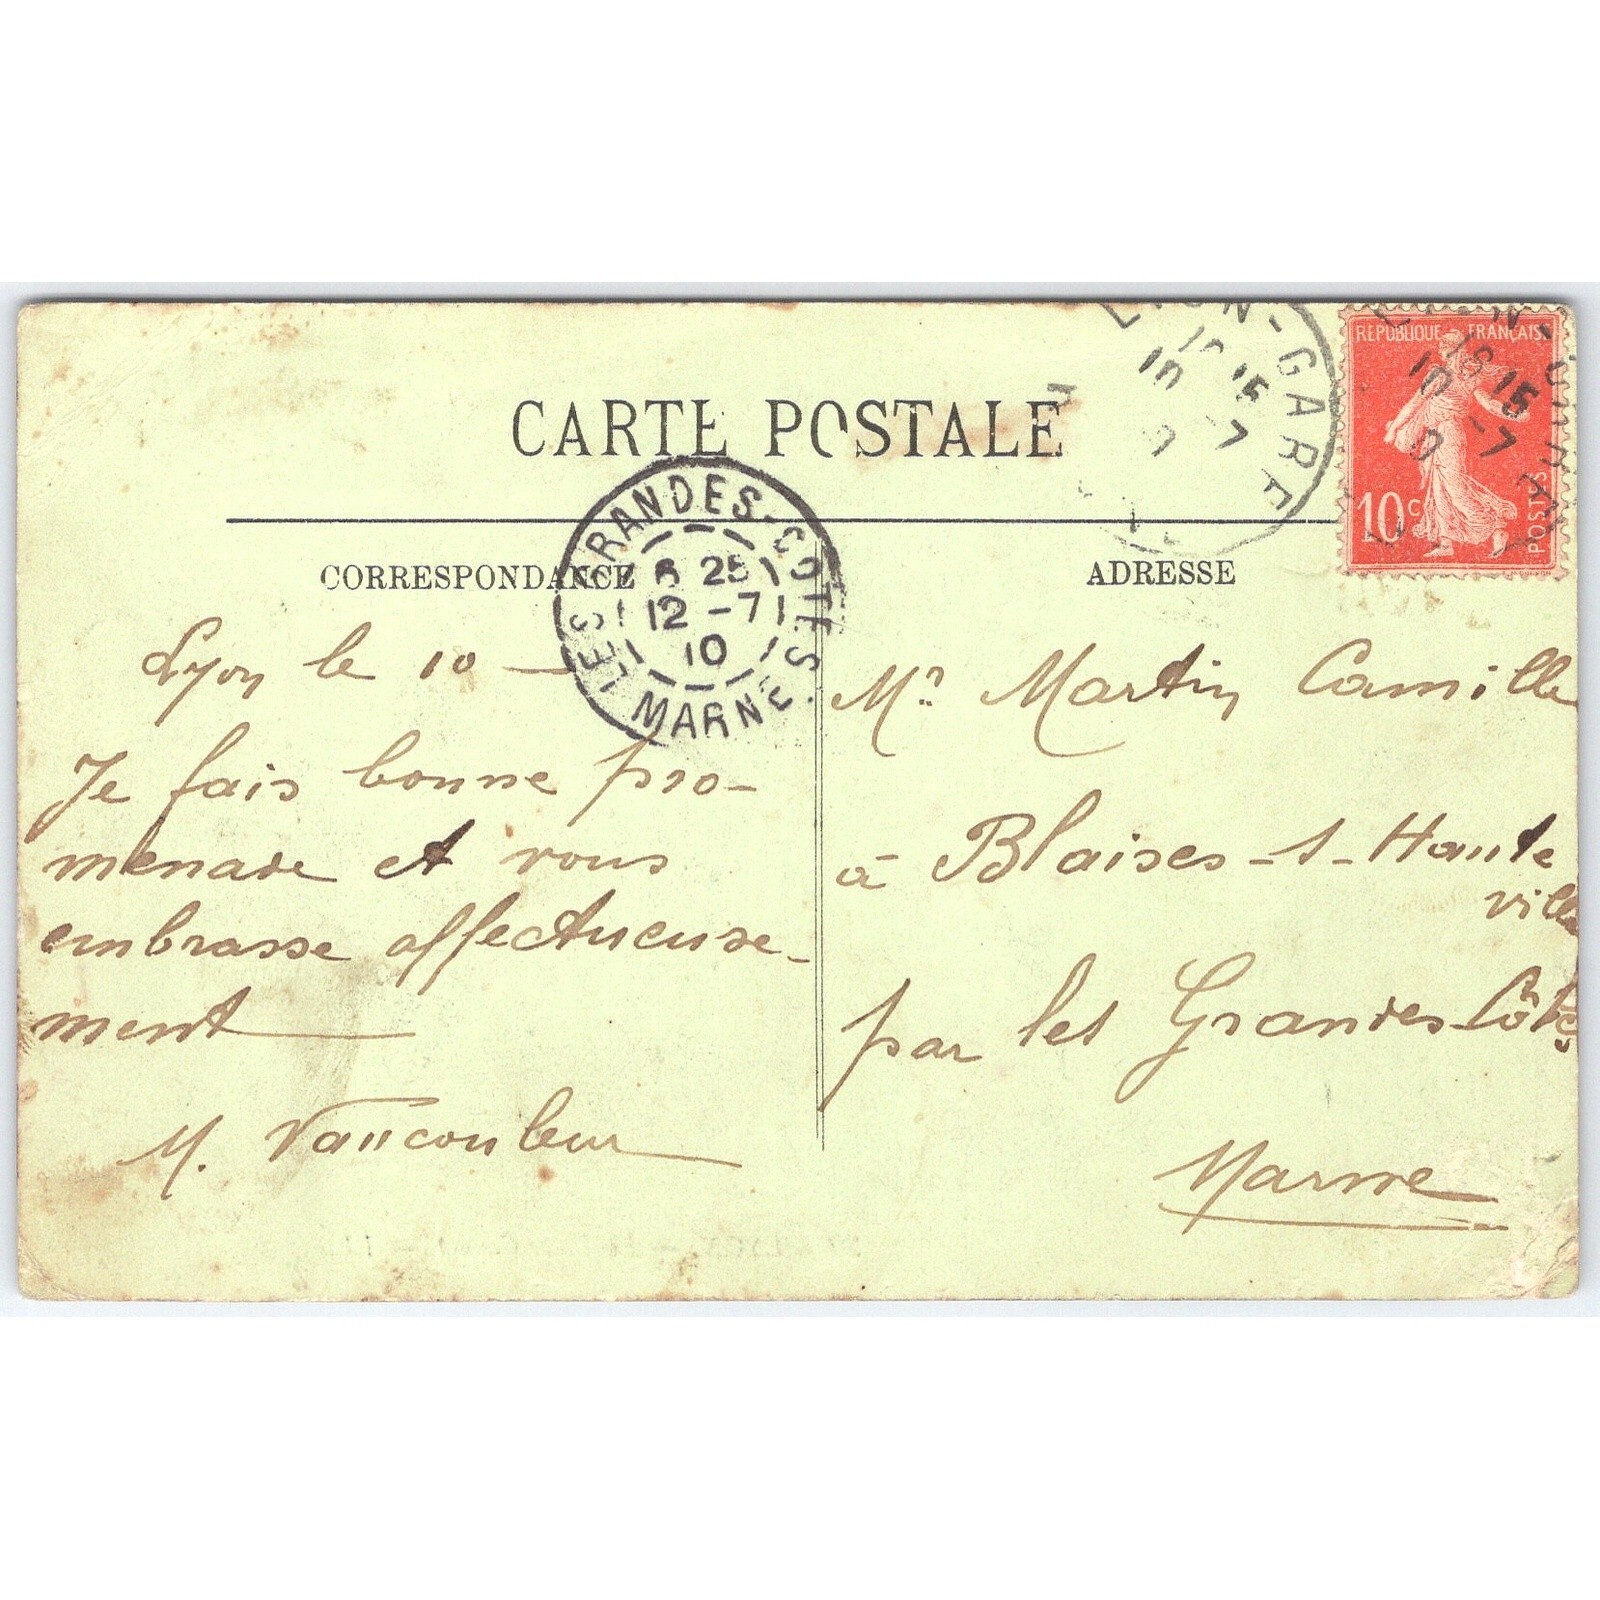 CARTE POSTALE
CORRESPONDANCE
ADRESSE
REPUBLIQUE FRANÇAISE
10c
POSTES
LYON-GARE
15
10 -7
LES GRANDES-CÔTES
25
12 -7
10
MARNE
Lyon le 10
Je fais bonne pro-
menade et vous
embrasse affectueuse-
ment
M. Vaucouleur
Mr Martin Camille
à Blaises-s-Haute
ville
par les Grandes-Côtes
Marne